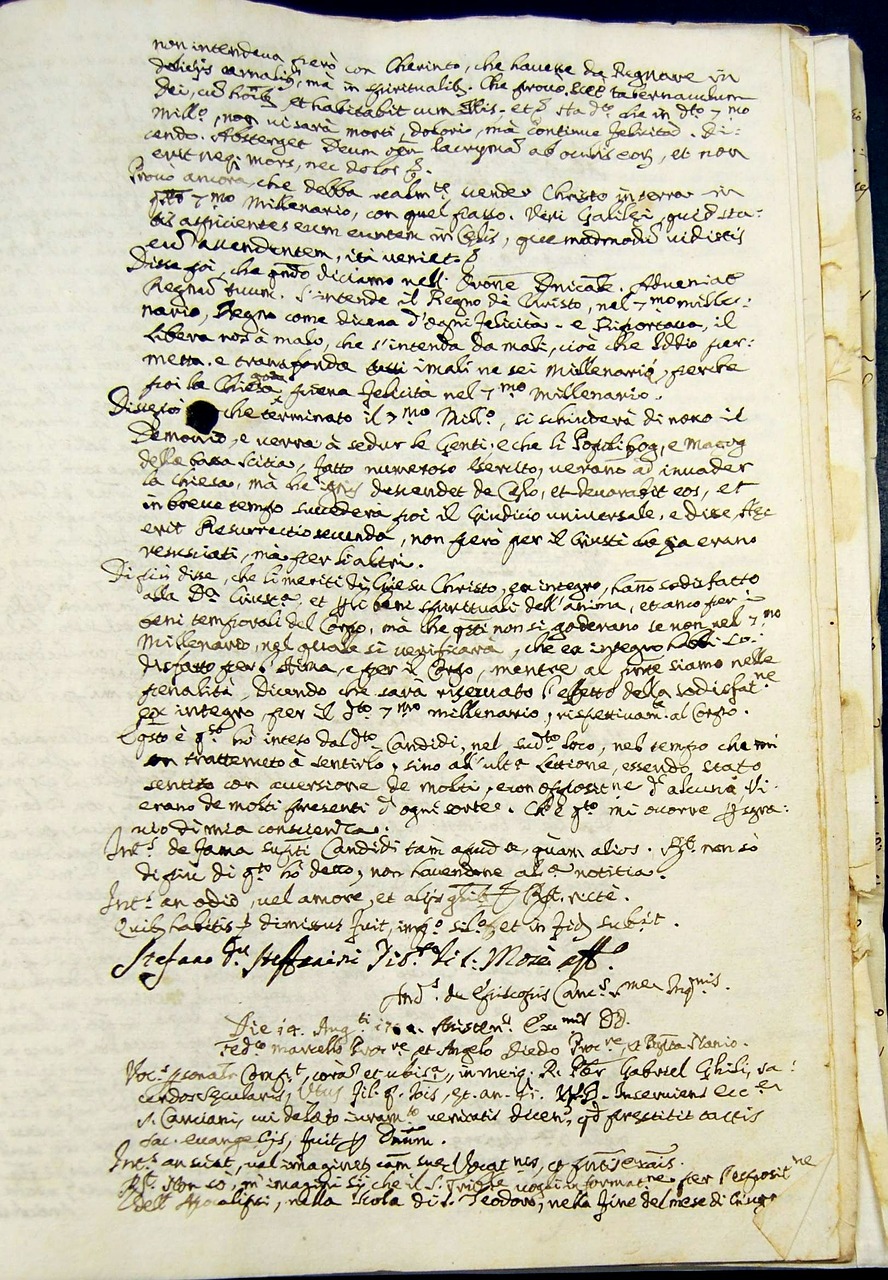 non intendeva però con Cherinto, che havesse da Regnare in
delicijs carnalib, mà in spiritualib. Che provò. Ecce tabernaculum
Dei, cũ hoĩb, et habitabit cum illis. et che in dto 7mo
Mill.º, non vi sarà morti, dolori, mà continua felicità. Di:
cendo. Absterget Deum oem lacrymã ab oculis eorũ, et non
erit neqz mors, nec dolor
Provò ancora, che debba realmte. vender Christo in terra in
qsto 7mo Millenario, con quel passo. Viri Galilei, quid sta:
tis aspicientes eum euntem in Celũ, quemadmodũ vidistis
eũ ascendentem, ità veniet
Disse poi, che qndo diciamo nell' Orone Dnicale. Adveniat
Regnũ tuum. S'intende il Regno di Christo, nel 7mo mille:
nario, Regno come diceva d'ogni felicità. e Riportava, il
Libera nos à malo, che s'intenda da mali, cioè che Iddio per:
metta e tutti i mali ne sei Millenarij, perche
poi la Chiesa piena felicità nel 7mo Millenario.
Disse poi che terminato il 7mo Mill.º, si schiuderà di novo il
Demonio, e verrà à sedur le Genti, e che li Popoli Gog, e Magog
della bassa Scitia, fatto numeroso Esercito, verano ad invader
la Chiesa, mà che ignis descendet de Celo, et devorabit eos, et
in breve tempo succederà poi il Giudicio universale, e disse, Hec
erit Resurrectio secunda, non però per li Giusti che già erano
resusciati, mà per li altri.
Di più disse, che li meriti di Giesu Christo, ex integro, hano sodisfatto
alla Da. Giustᵃ, et pli beni spirituali dell' anima, et anco per i
beni temporali del Corpo, mà che qsti non si goderano se non nel 7mo
Millenario, nel quale si verificarà, che ex integro habbi so:
disfatto per l'Anima, e per il Corpo, mentre al pnte siamo nelle
penalità, dicendo che sarà riservato l'effetto della sodisfatne
ex integro, per il dto 7mo millenario, rispettivamte al Corpo.
Qsto è qto hò inteso dal dto Candidi, nel sudto loco, nel tempo che mi
son trattenuto à sentirlo, sino all'ultª Lettione, essendo stato
sentito con aversione da molti, e con oppositne d'alcuni. Vi
erano de molti presenti d'ogni sorte. Ch'è qto mi ocorre p sgra:
vio di mia conscienza.
Ints. de fama supti Candidi tam apud se, quam alios. Rt. non sò
di più di qto hò detto, non havendone altª notitia.
Ints. an odio, vel amore, et alijs gnlib Rt. rectè.
Quib habitis dimissus fuit, impº silº et in fidẽ subit.
Stefano
Andˢ. de Episcopis Cancˢ
Die 14. Augti Assisten. Exmis DD.
Fedco Marcello Procre, et Angelo Diedo Procre, et Btta Nanio.
Voc personalr compt, corã et ubi sª, in meiq. R. Pter Gabriel Ghisi, sa:
cerdos secularis, fil. q. Inserviens Eccª
S. Canciani, cui delato iuramto veritatis dicen, qd prestitit tactis
sac. evangelijs, fuit
Ints. an sciat, vel imaginet cam suę Vocatnis, et pntis exãis.
Rt. Non sò, m'imagini si che il S. Trible vogli informatne per l'espositne
dell' Apocalipsi, nella scola di S. Teodoro, nella fine del mese di Giugº